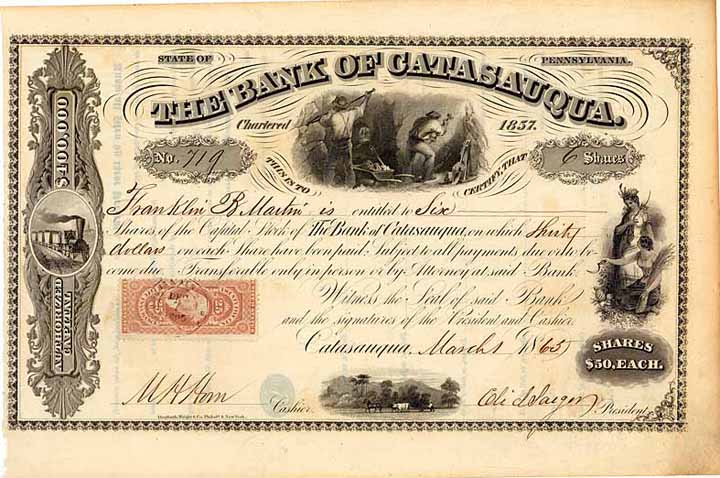 STATE OF PENNSYLVANIA.
THE BANK OF CATASAUQUA.
Chartered 1857.
No. 719 THIS IS TO CERTIFY, THAT 6 Shares
Franklin B Martin is entitled to Six
Shares of the Capital Stock of The Bank of Catasauqua, on which thirty
dollars on each Share have been paid. Subject to all payments due or to be-
come due. Transferable only in person or by Attorney at said Bank.
Witness the Seal of said Bank
and the signatures of the President and Cashier.
Catasauqua, March 1 1865
M H Horn Cashier. Eli J Saeger President
AUTHORIZED CAPITAL $400,000
SHARES
$50, EACH.
25 25